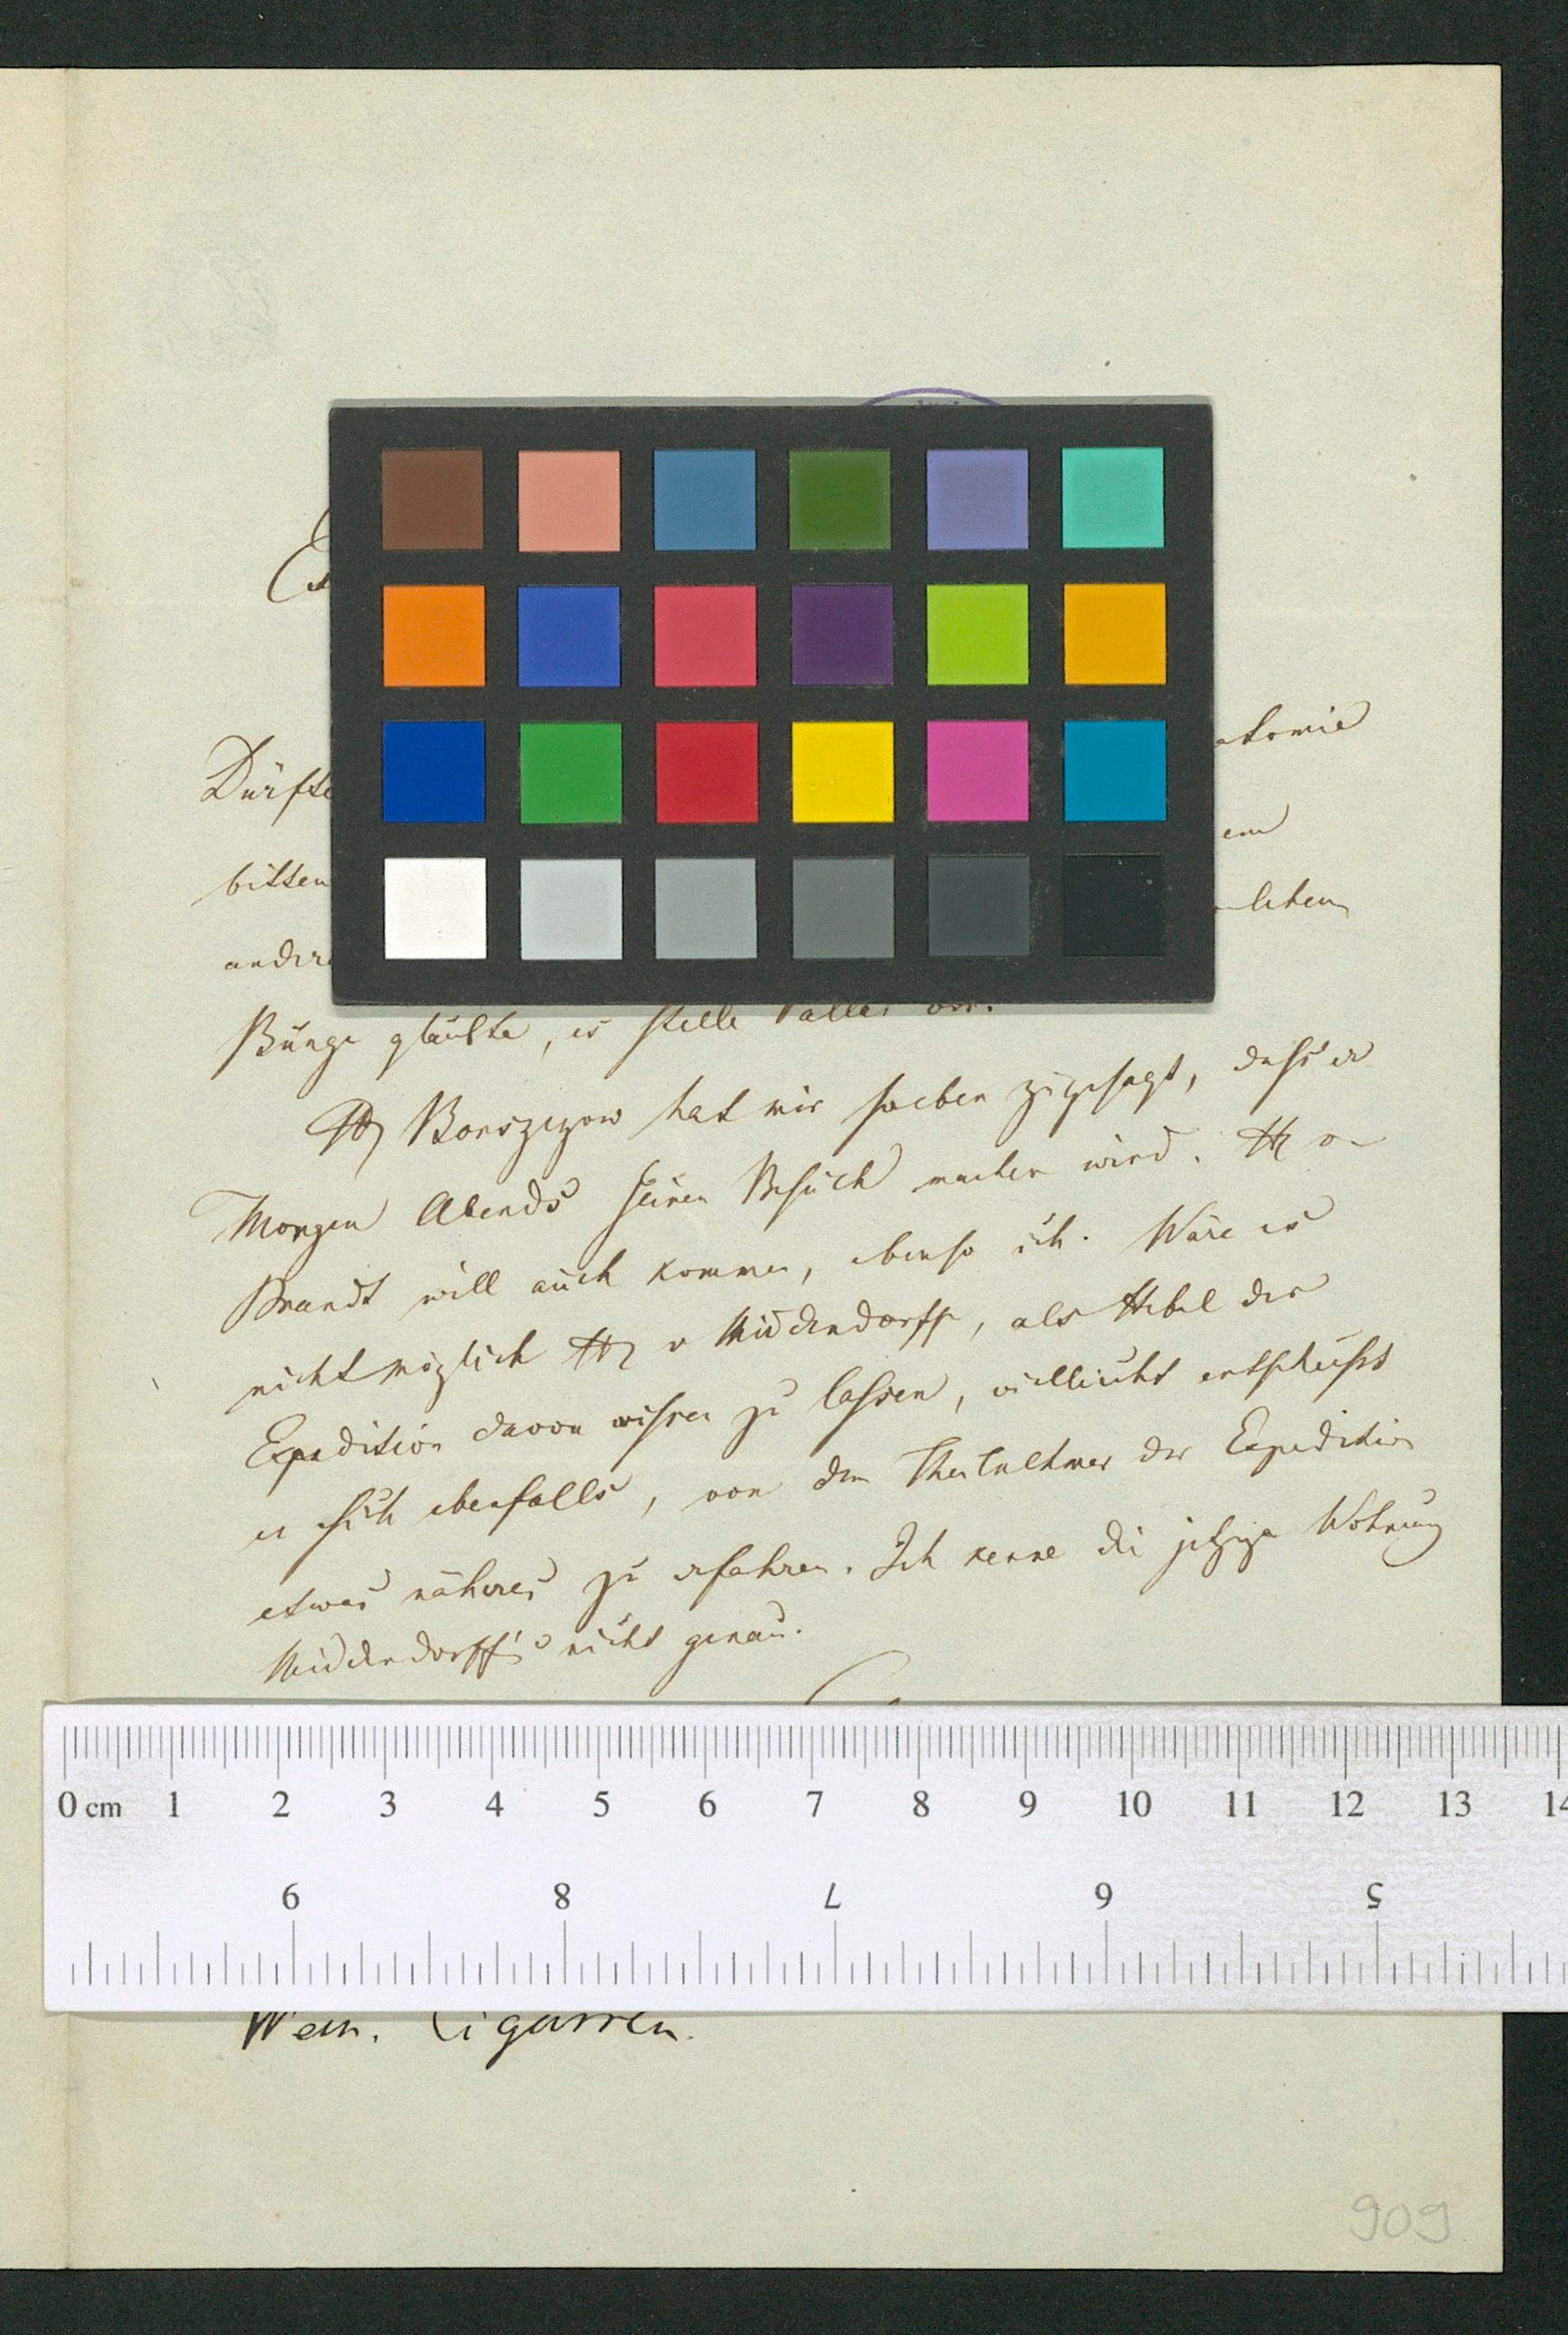 Dürfte
atomie
bitten
em
andere
Bunge glaubte, es stelle Pallas vor.
Hr Borszczow hat mir soeben zugesagt, dass er
Morgen Abends seinen Besuch machen wird. Hr v
Brandt will auch kommen, ebenso ich. Wäre es
nicht möglich Hr v Middendorff, als Hebel der
Expedition davon wissen zu lassen, vielleicht entschliesst
er sich ebenfalls, von dem Theilnehmer der Expedition
etwas näheres zu erfahren. Ich kenne die jetzige Wohnung
Middendorff's nicht genau.
0 cm 1 2 3 4 5 6 7 8 9 10 11 12 13 14
9 8 7 6 5
Wein. Cigarren.
909